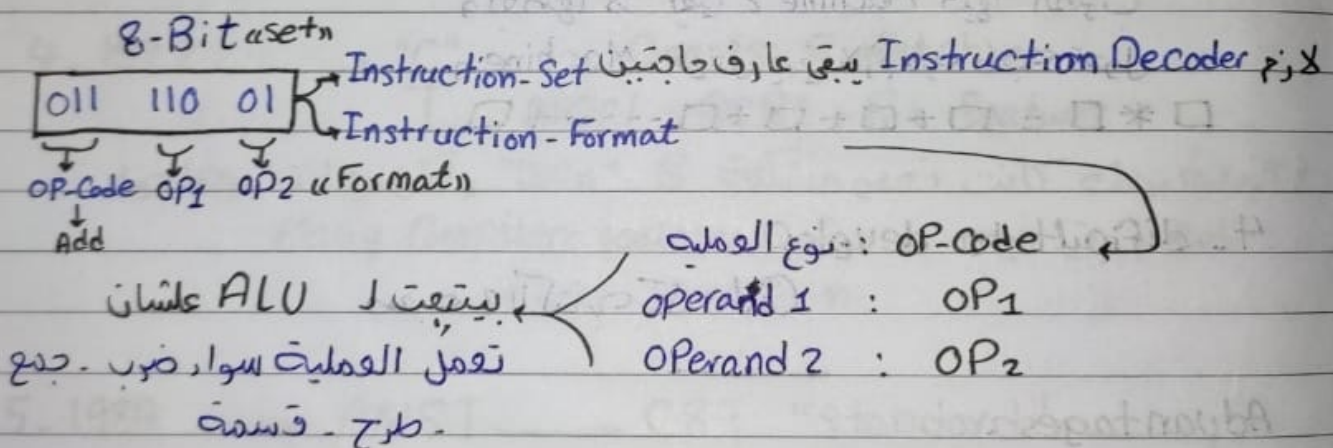 8-Bit «set»
لازم Instruction Decoder يبقى عارف حاجتين Instruction-Set
Instruction-Format
011 110 01
OP-Code OP1 OP2 «Format»
Add
OP-Code : نوع العملية
OP1 : operand 1
OP2 : OPerand 2
بيتبعت لـ ALU علشان
تعمل العملية سوا، ضرب - جمع
- طرح - قسمة